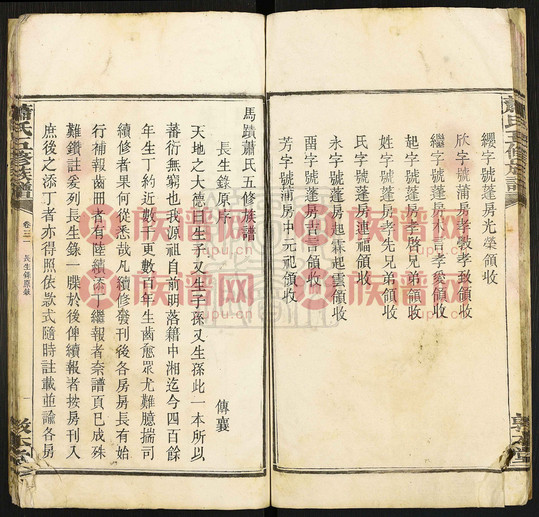 纓字號蓬房光榮領收
欣字號蒲房孝敦孝致領收
繼字號蓬房木吉孝愛領收
起字號蓬房孝啓兄弟領收
姓字號蓬房孝先兄弟領收
氏字號蓬房進福領收
永字號蓬房起霖起雲領收
畱字號蓬房吉言領收
芳字號蒲房中元祀領收
馬蹟蕭氏五修族譜
長生錄原序
傳襄
天地之大德曰生子又生孫又生孫此一本所以
蕃衍無窮也我源祖自前明落籍中湘迄今四百餘
年生丁約近數千更數百年生齒愈眾尤難臆揣司
續修者果何從悉哉凡續修發刊後各房房長有始
行補報齒冊者有陸續添丁繼報者奈譜頁已成殊
難鑽註爰列長生錄一牒於後俾續報者按房刊入
庶後之添丁者亦得照依款式隨時註載並諭各房
蕭氏五修族譜
卷三
長生錄原敘
敦本堂
族谱网
jiapu.tv